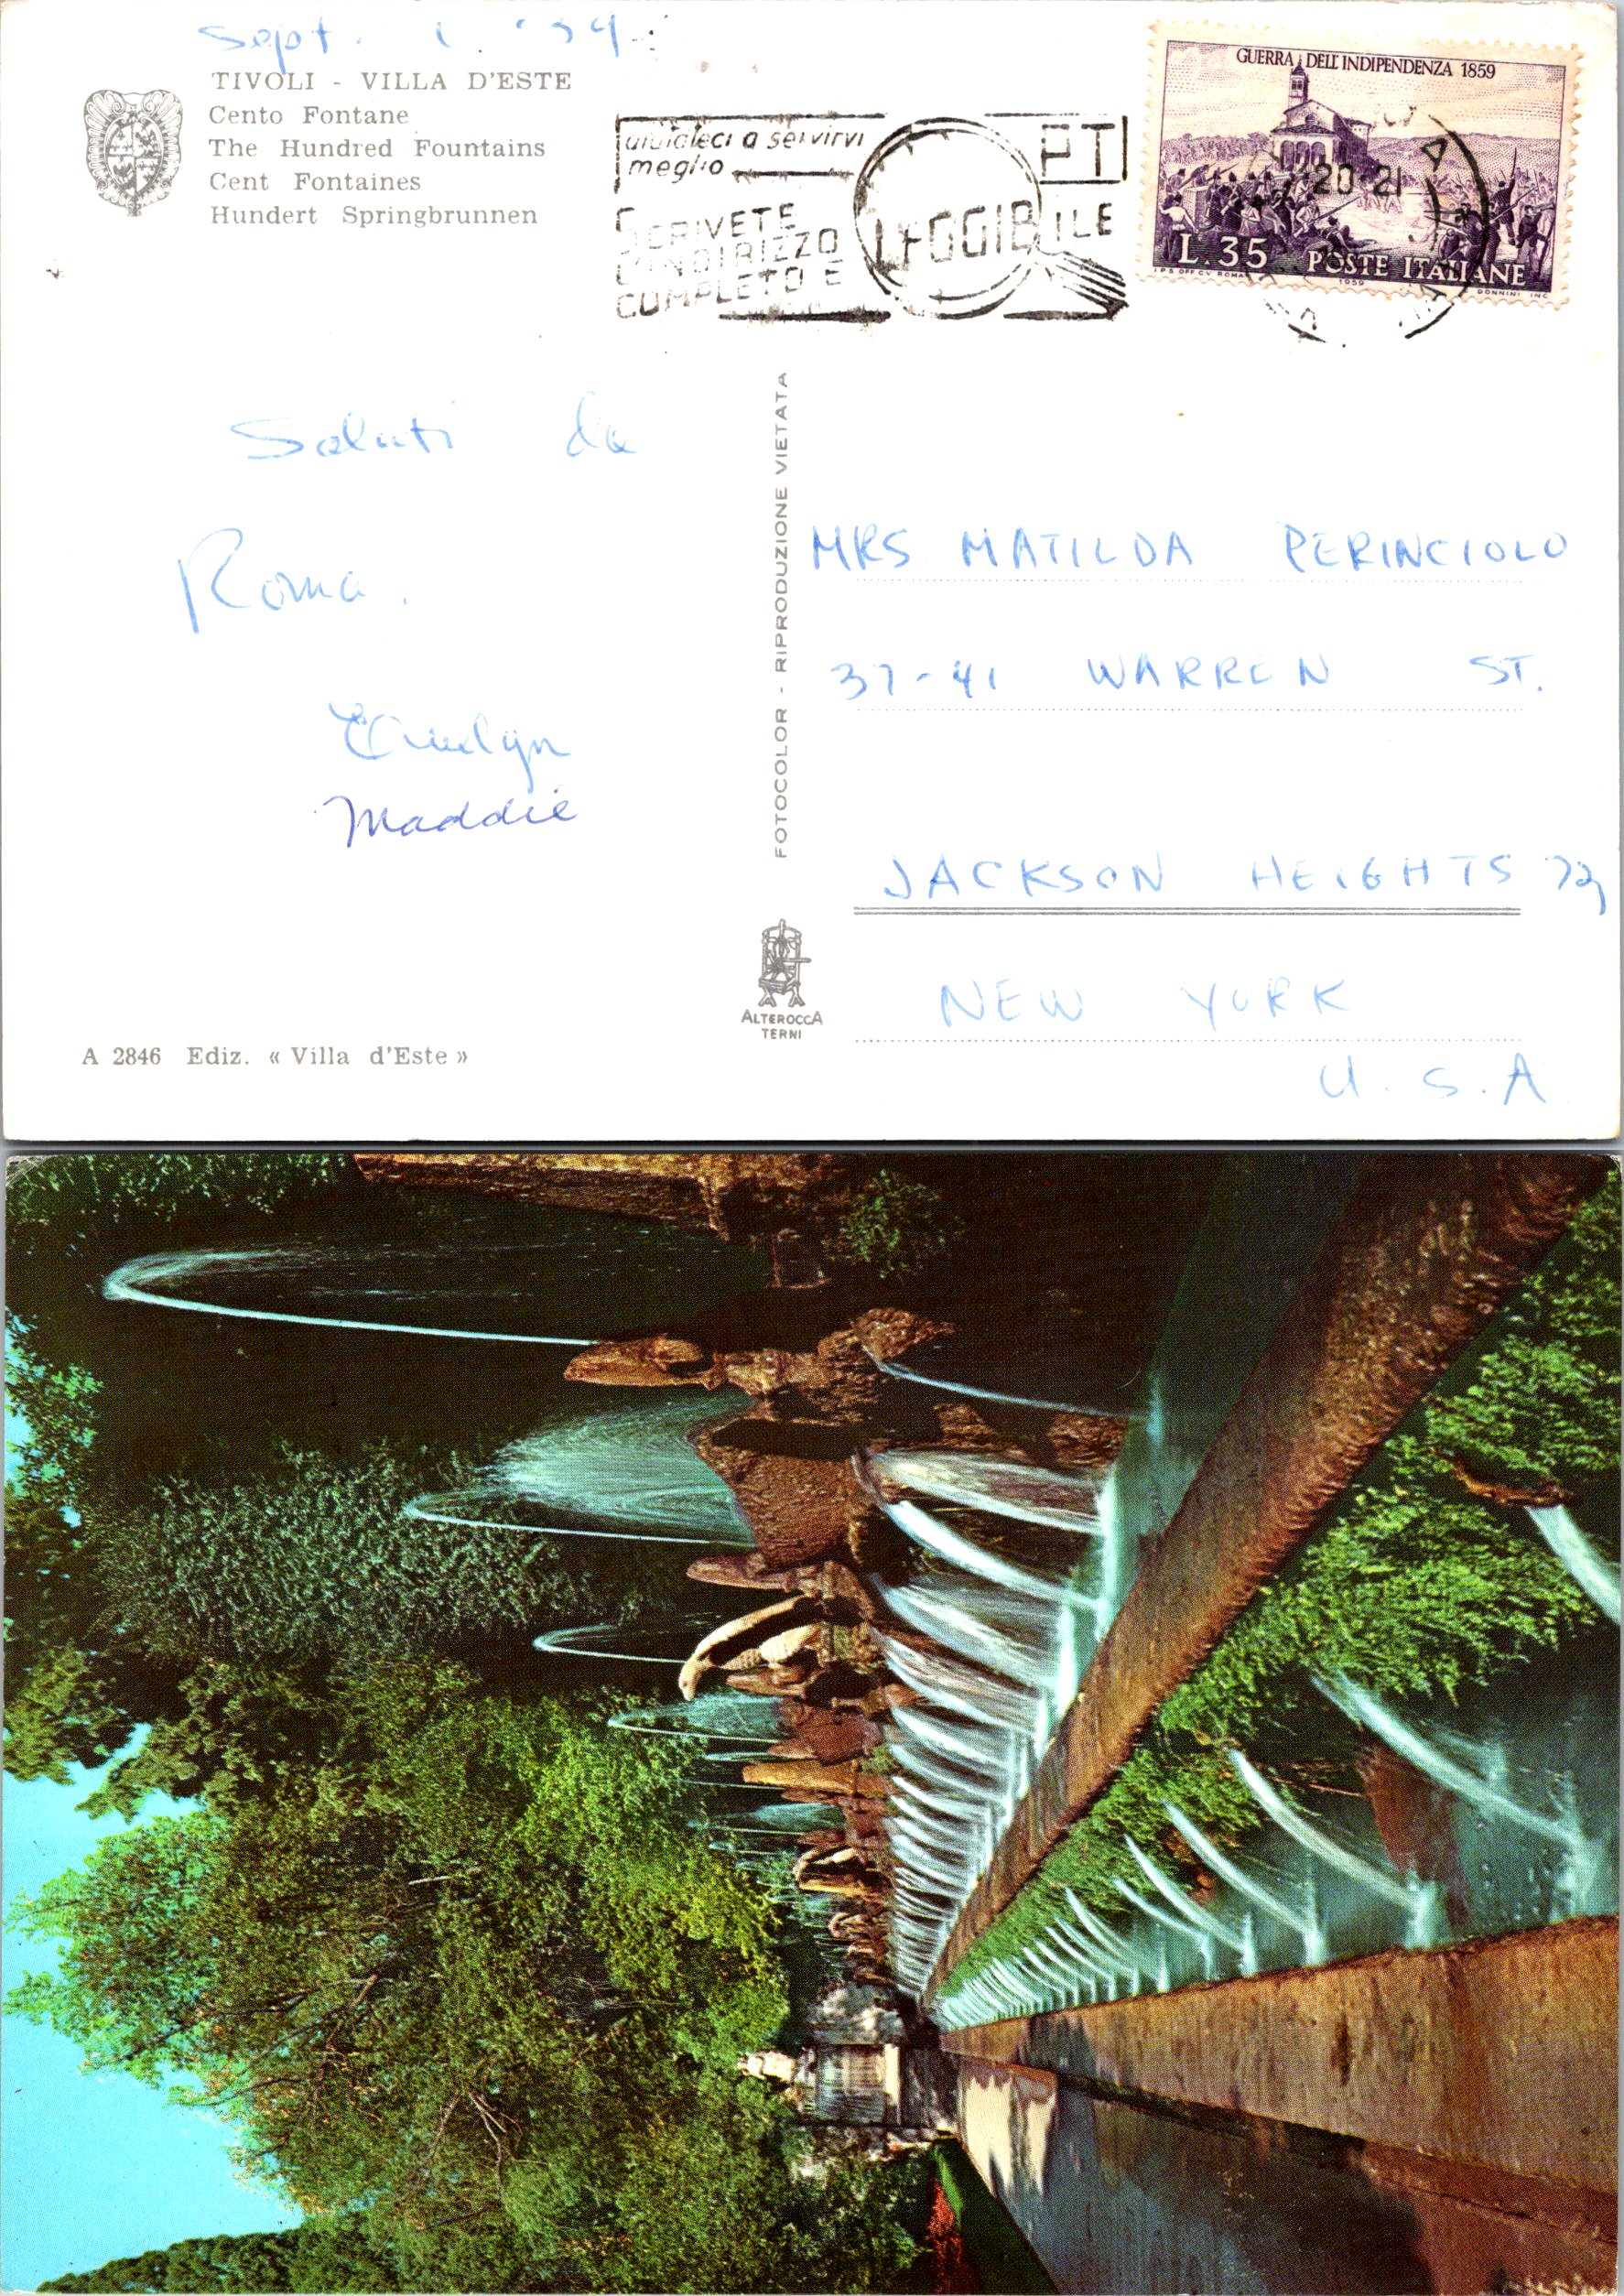 Sept. 1. '59
TIVOLI - VILLA D'ESTE
Cento Fontane
The Hundred Fountains
Cent Fontaines
Hundert Springbrunnen
aiutateci a servirvi
meglio
PT
SCRIVETE
L'INDIRIZZO
COMPLETO E
LEGGIBILE
GUERRA DELL'INDIPENDENZA 1859
20-21
L.35 POSTE ITALIANE
I.P.S. OFF. C.V. ROMA 1959 DONNINI INC.
Saluti da
Roma.
Evelyn
Maddie
FOTOCOLOR - RIPRODUZIONE VIETATA
MRS MATILDA PERINCIOLO
37-41 WARREN ST.
JACKSON HEIGHTS 72,
NEW YORK
U.S.A
ALTEROCCA
TERNI
A 2846 Ediz. « Villa d'Este »